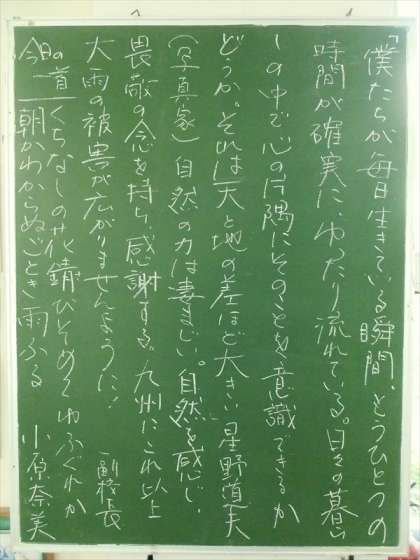 「僕たちが毎日生きている瞬間、もうひとつの
時間が確実に、ゆったり流れている。日々の暮ら
しの中で心の片隅にそのことを意識できるか
どうか。それは天と地の差ほど大きい 星野道夫
(写真家) 自然の力は凄まじい。自然を感じ、
畏敬の念を持ち、感謝する。九州にこれ以上
大雨の被害が広がりませんように! 副校長
今日の一首 くちなしの花錆びそめてゆふぐれか
朝かわからぬごとき雨ふる 小原奈美